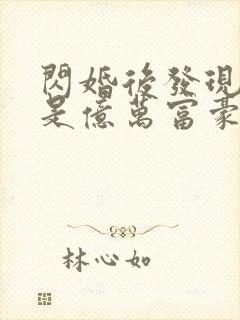 閃婚後發現
是億萬富豪
林心如